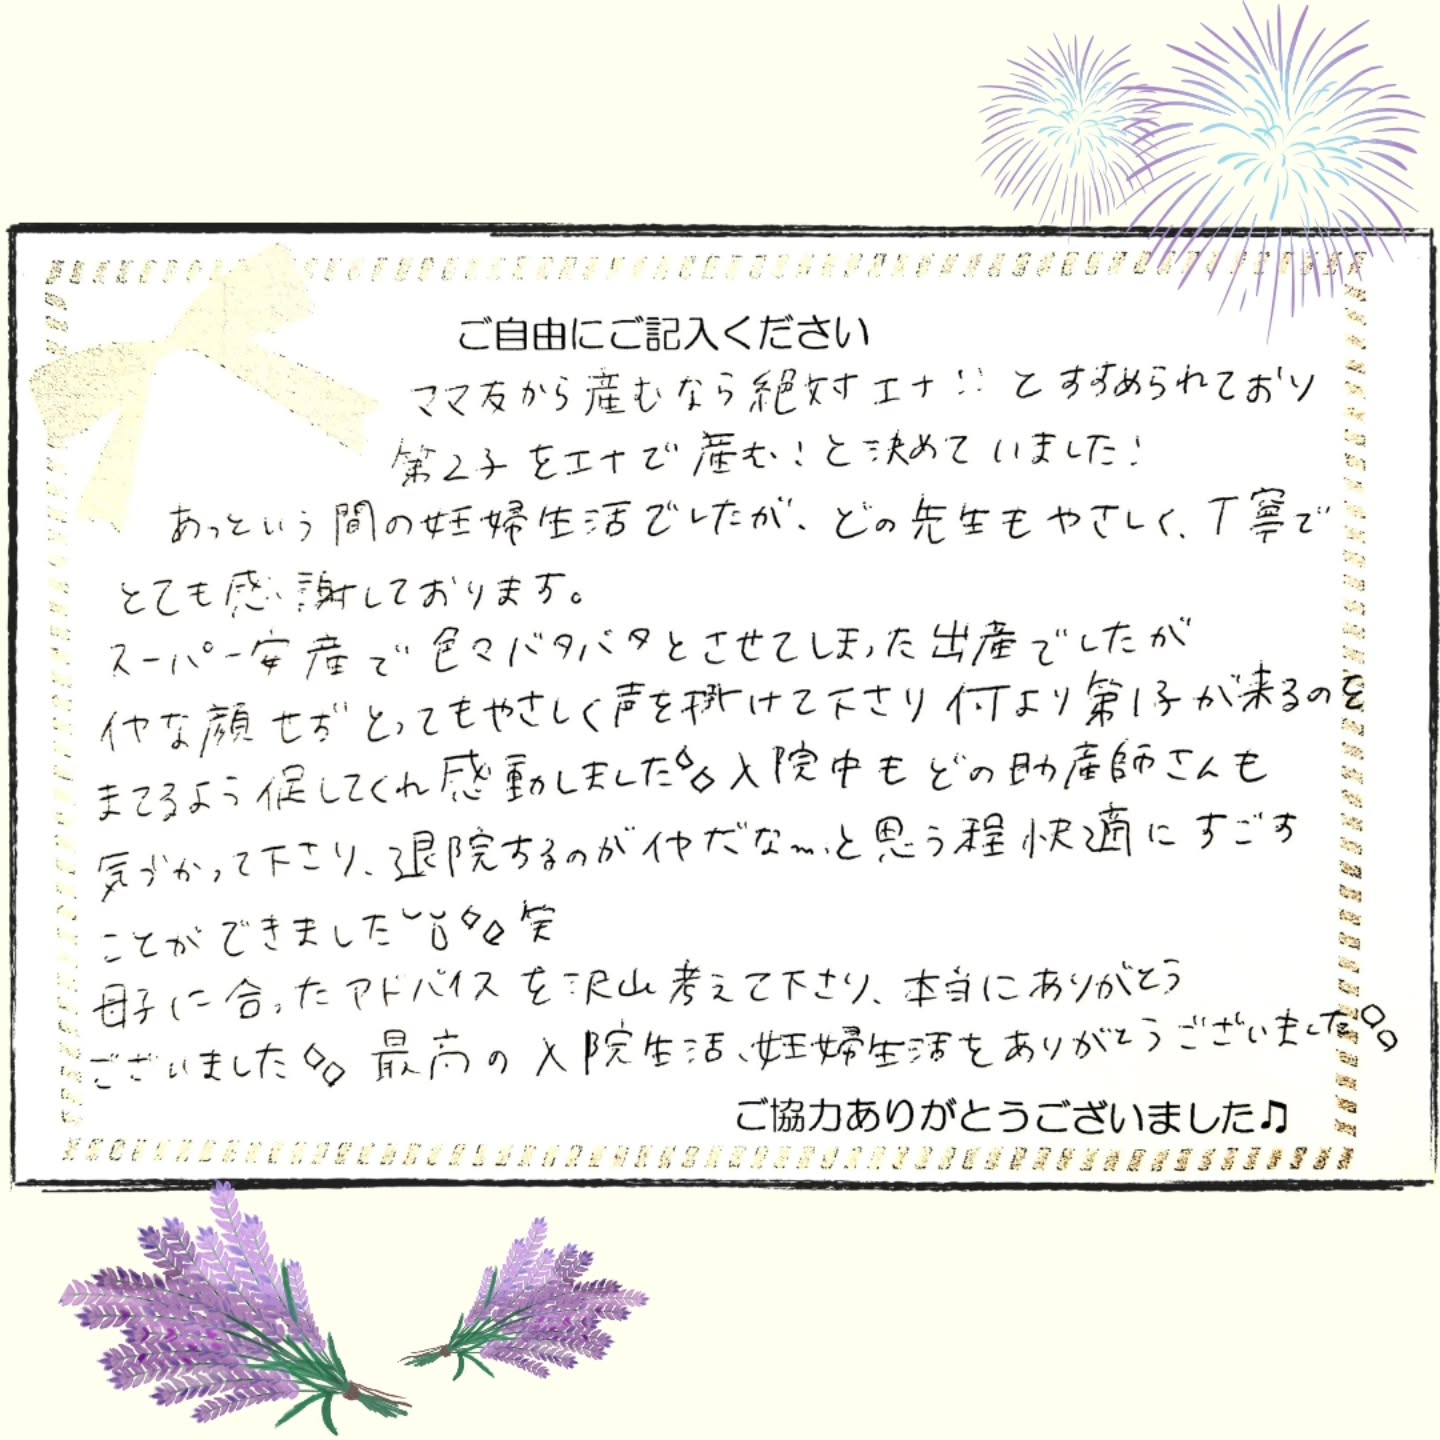 ご自由にご記入ください
ママ友から産むなら絶対エナ!! とすすめられており
第2子をエナで産む!と決めていました!
あっという間の妊婦生活でしたが、どの先生もやさしく、丁寧で
とても感謝しております。
スーパー安産で色々バタバタとさせてしまった出産でしたが
イヤな顔せずとってもやさしく声を掛けて下さり何より第1子が来るのを
まてるよう促してくれ感動しました 入院中もどの助産師さんも
気づかって下さり、退院するのがイヤだな〜、と思う程快適にすごす
ことができました 笑
母子に合ったアドバイスを沢山考えて下さり、本当にありがとう
ございました 最高の入院生活、妊婦生活をありがとうございました
ご協力ありがとうございました♫